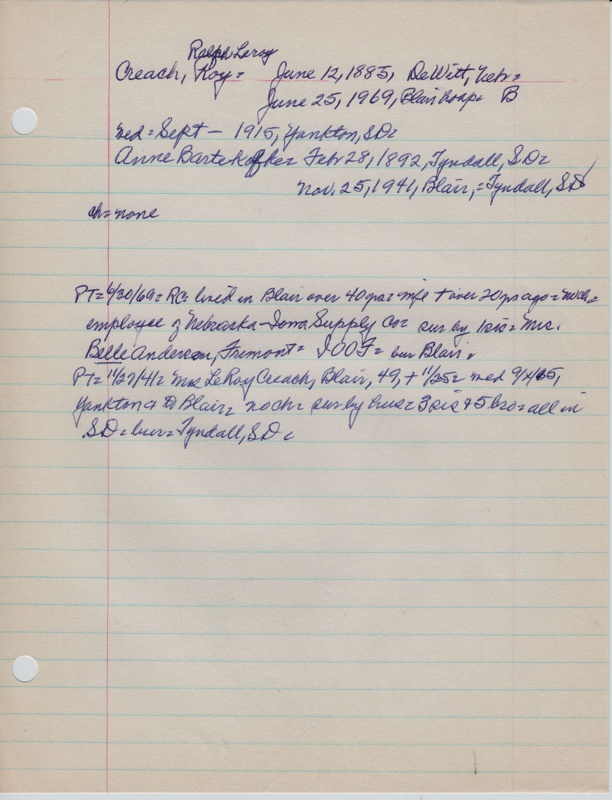 Ralph Leroy
Creach, Roy = June 12, 1885, DeWitt, Nebr=
June 25, 1969, Blair Hosp= B
Med = Sept - 1915, Yankton, SD=
Anne Feb 28, 1892, Tyndall, SD=
Nov. 25, 1941, Blair, = Tyndall, SD
ch = none
PT= 6/30/69= RC= lived in Blair over 40 yrs= wife + over 20 yrs ago=
employee of Nebraska-Iowa Supply Co= sur by 1 sis= Mrs.
Belle Anderson, Fremont= IOOF= bur Blair.
PT= 11/27/41= Mrs LeRoy Creach, Blair, 49, + 11/25= med
Yankton Blair= no ch= sur by hus= 3 sis + 5 bro= all in
SD= bur= Tyndall, SD=